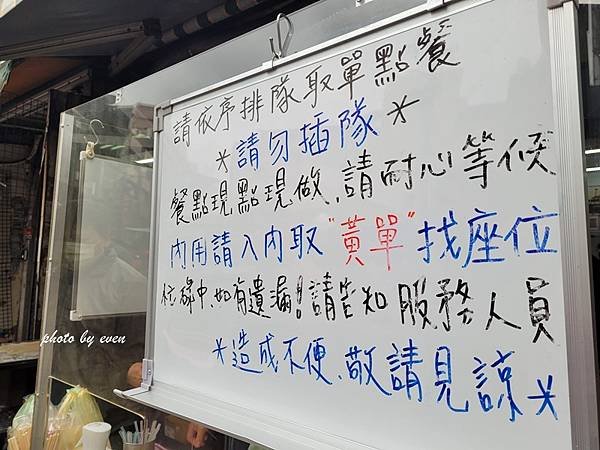 請依序排隊取單點餐
*請勿插隊*
餐點現點現做,請耐心等候
內用請入內取"黃單"找座位
忙碌中、如有遺漏!請告知服務人員
*造成不便、敬請見諒*
photo by even